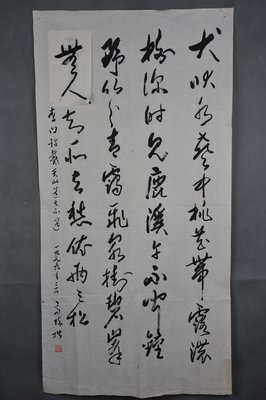 犬吠水聲中桃花帶露濃
樹深时見鹿溪午不聞鐘
野竹分青靄飛泉掛碧峯
無人知所去愁依兩三松
李白訪戴天山道士不遇
一九